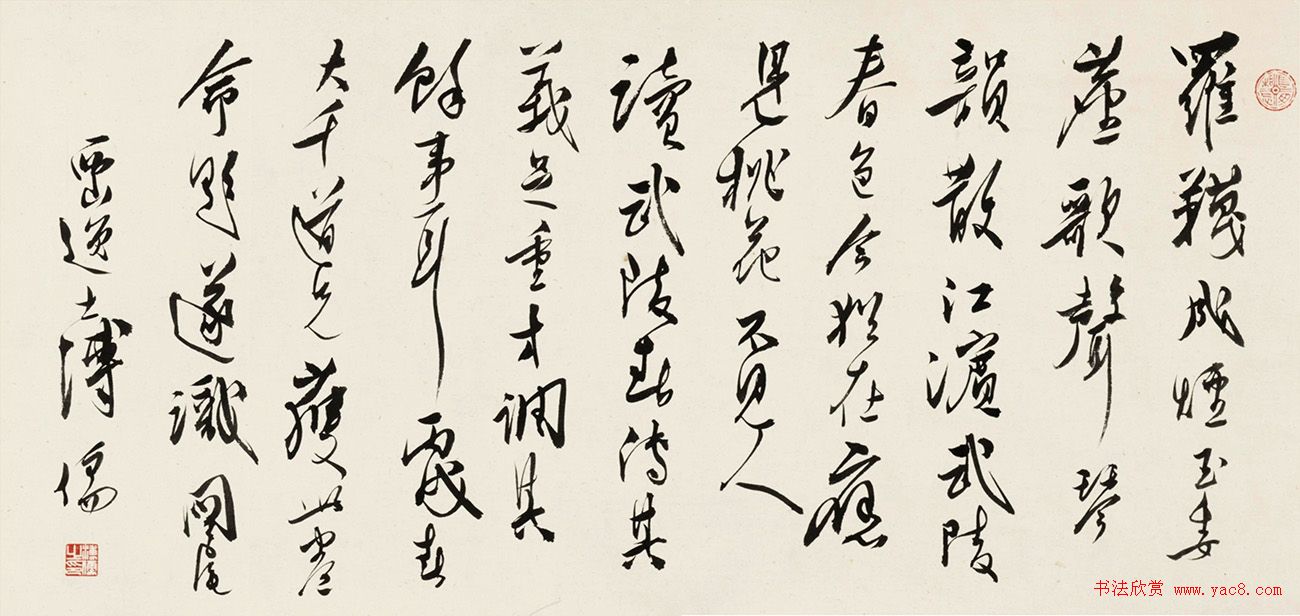 羅韈成煙玉委
塵歌聲琴
韻散江濱武陵
春色今猶在應
是桃花不見人
讀武陵春傳其
義足重才調其
餘事耳丙戌春
大千道兄獲此卷
命題遂識後
西山逸士溥儒
书法欣赏 www.yac8.com